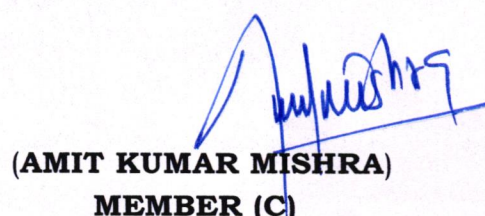 (AMIT KUMAR MISHRA)
MEMBER (C)